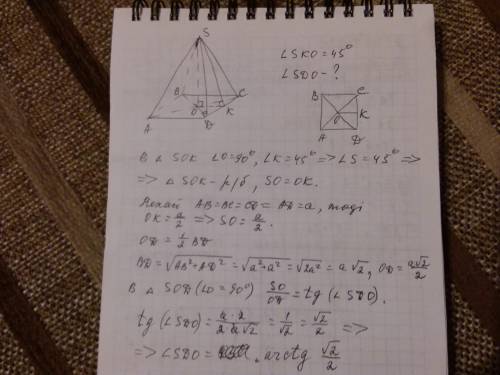 S
∠SKO = 45°
∠SDO - ?
B C
O K
A D
B C
O K
A D
В △ SOK ∠O = 90°, ∠K = 45° => ∠S = 45° =>
=> △ SOK - р/б, SO = OK.
Нехай AB = BC = CD = AD = a, тоді
OK = a/2 => SO = a/2.
OD = 1/2 BD
BD = √(AB² + AD²) = √(a² + a²) = √(2a²) = a√2, OD = a√2/2
В △ SOD (∠O = 90°) SO/OD = tg(∠SDO).
tg(∠SDO) = a·2/(2a√2) = 1/√2 = √2/2 =>
=> ∠SDO = arctg √2/2